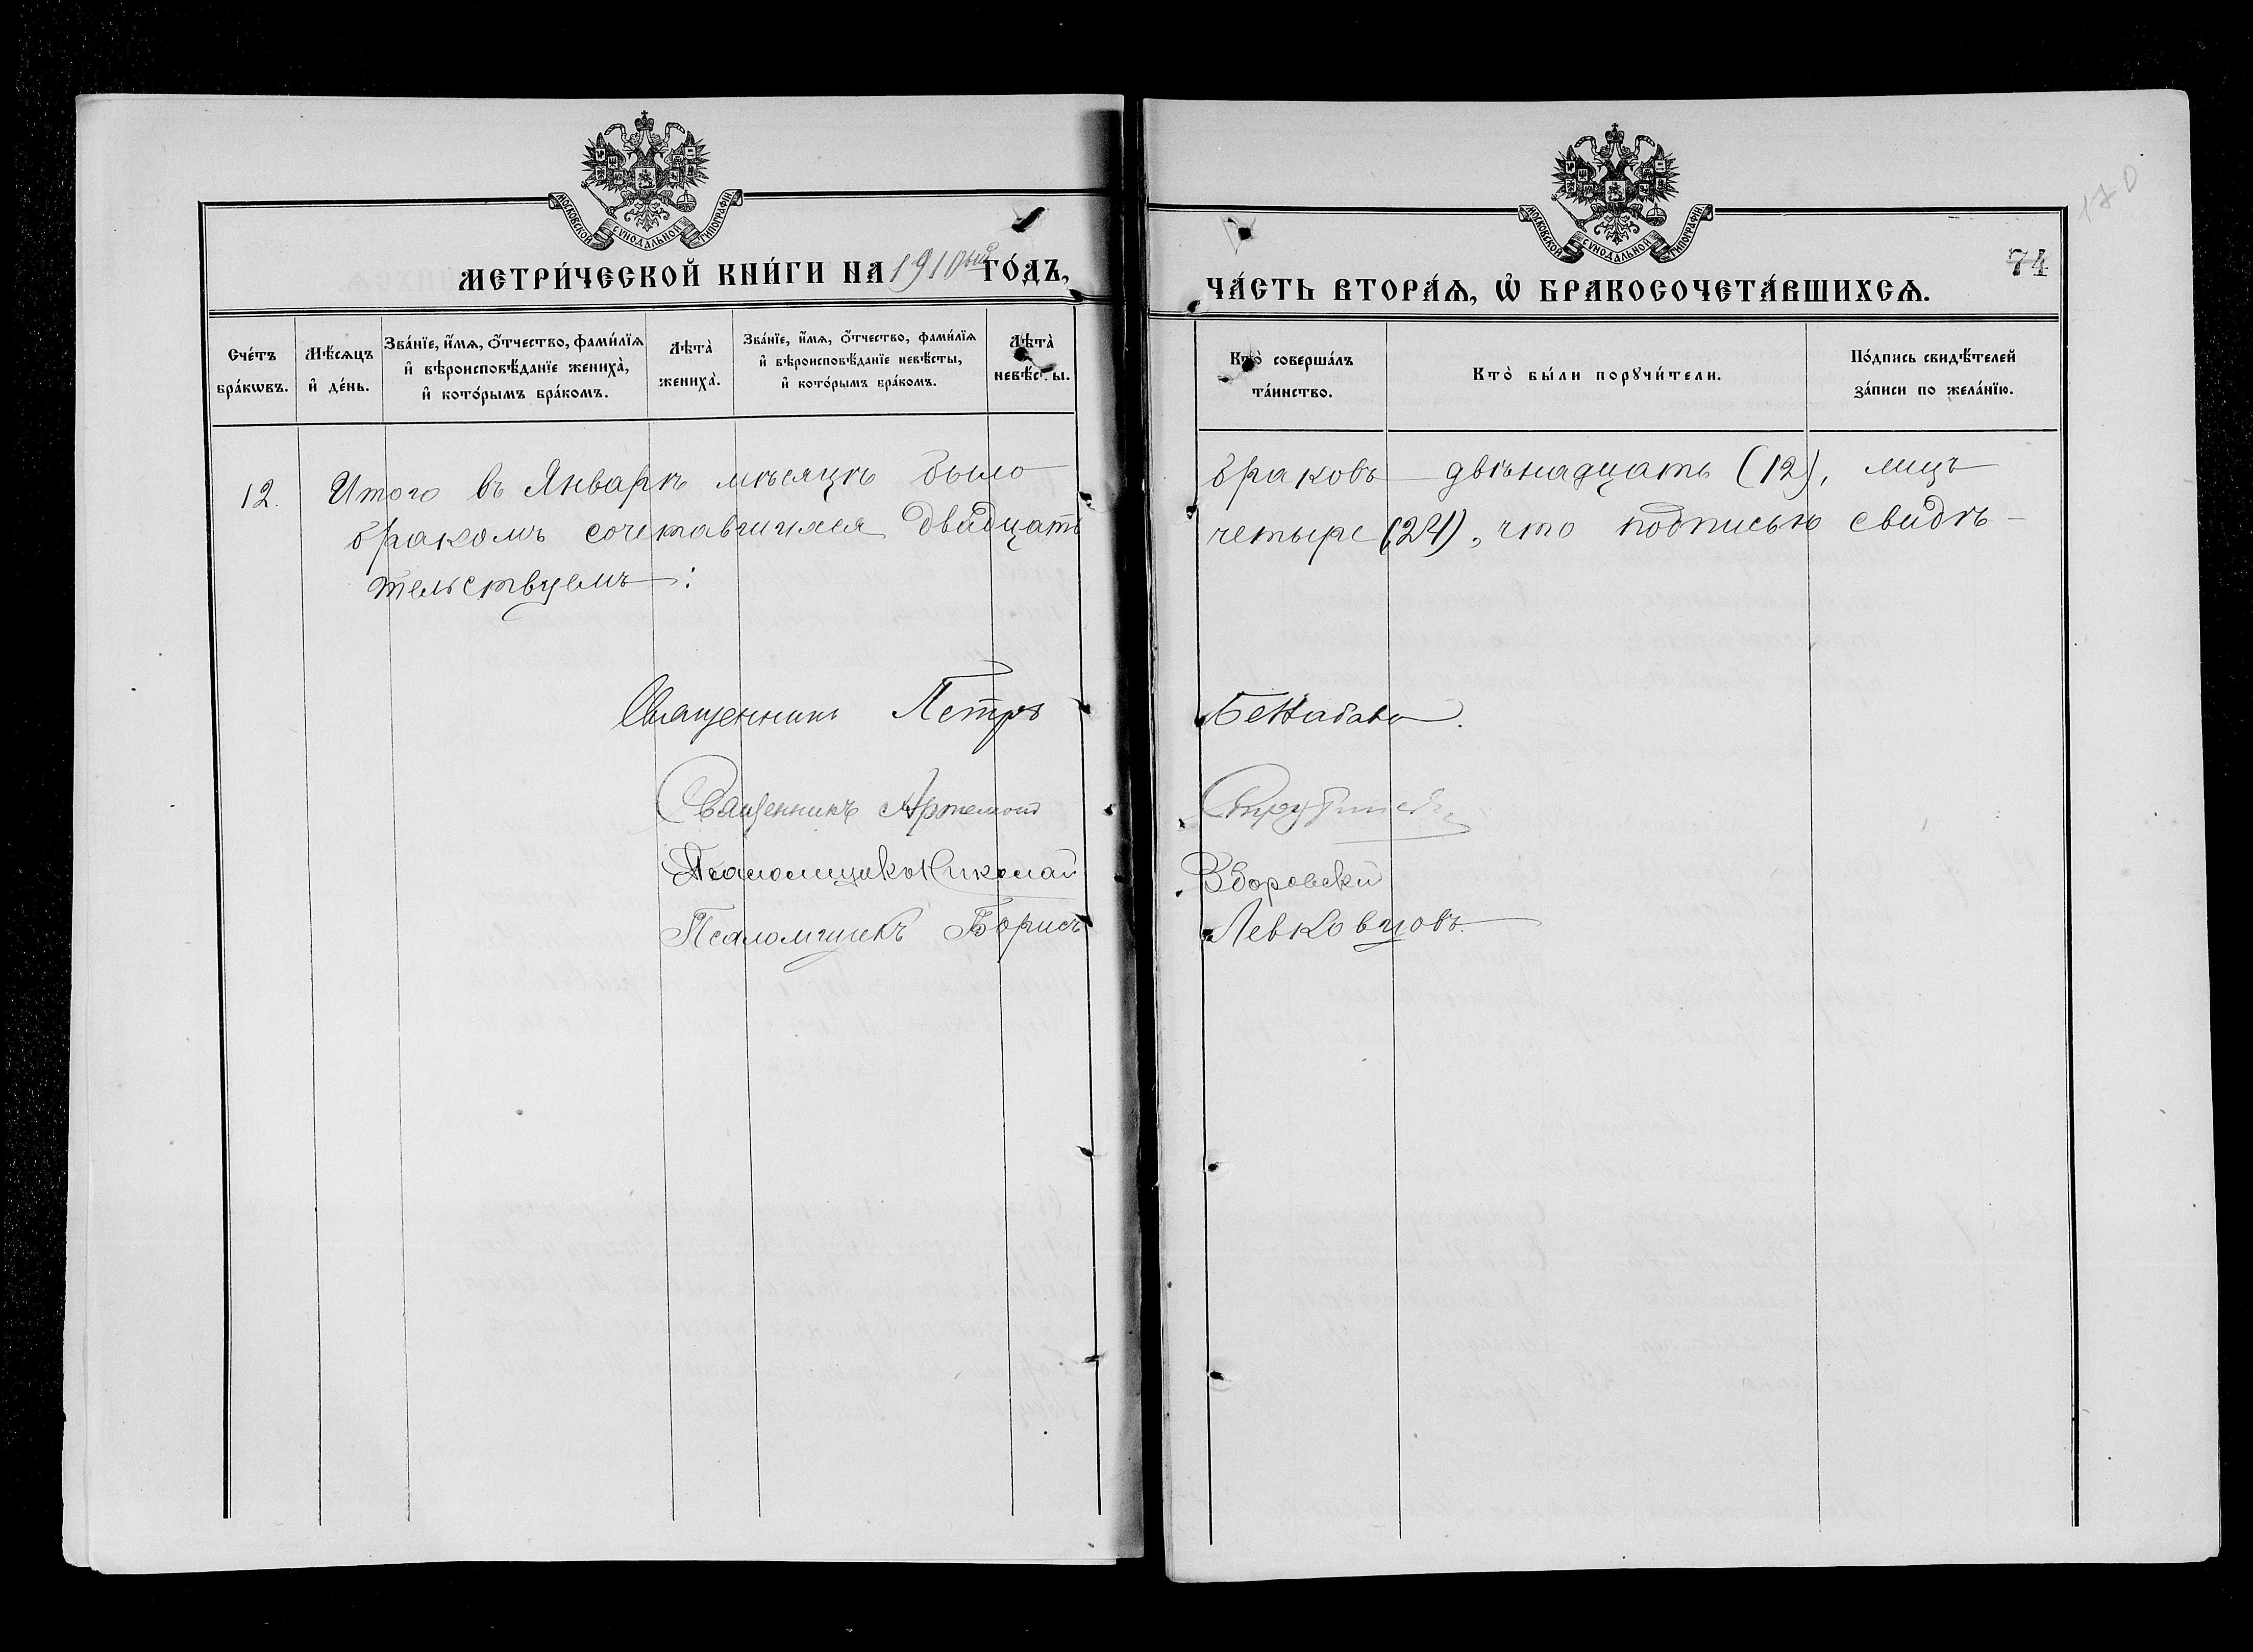 МОСКОВСКОЙ СѴНОДАЛЬНОЙ ТИПОГРАФІИ.
МЕТРИ́ЧЕСКОЙ КНИ́ГИ НА 1910ый ГО́ДЪ,
Сче́тъ бра́кѡвъ.
Мѣ́сяцъ и҆ де́нь.
Зва́нїе, и҆́мѧ, ѻ҆́тчество, фами́лїѧ и҆ вѣроисповѣ́данїе жениха̀, и҆ кото́рымъ бра́комъ.
Лѣта̀ жениха̀.
Зва́нїе, и҆́мѧ, ѻ҆́тчество, фами́лїѧ и҆ вѣроисповѣ́данїе невѣ́сты, и҆ кото́рымъ бра́комъ.
Лѣта̀ невѣ́сты.
12. Итого въ Январѣ мѣсяцѣ было
бракомъ сочетавшихся двадцать
тельствуемъ:
Священникъ Петръ
Священникъ Артемонъ
Псаломщикъ Николай
Псаломщикъ Борисъ
МОСКОВСКОЙ СѴНОДАЛЬНОЙ ТИПОГРАФІИ.
170
74
ЧА́СТЬ ВТОРА́Ѧ, Ѡ҆ БРАКОСОЧЕТА́ВШИХСѦ.
Кто̀ соверша́лъ та́инство.
Кто̀ бы́ли порꙋчи́тели.
По́дпись свидѣ́телей за́писи по жела́нїю.
браковъ двѣнадцать (12), лицъ
четыре (24), что подписью свидѣ-
Зборовскій
Левковцовъ.